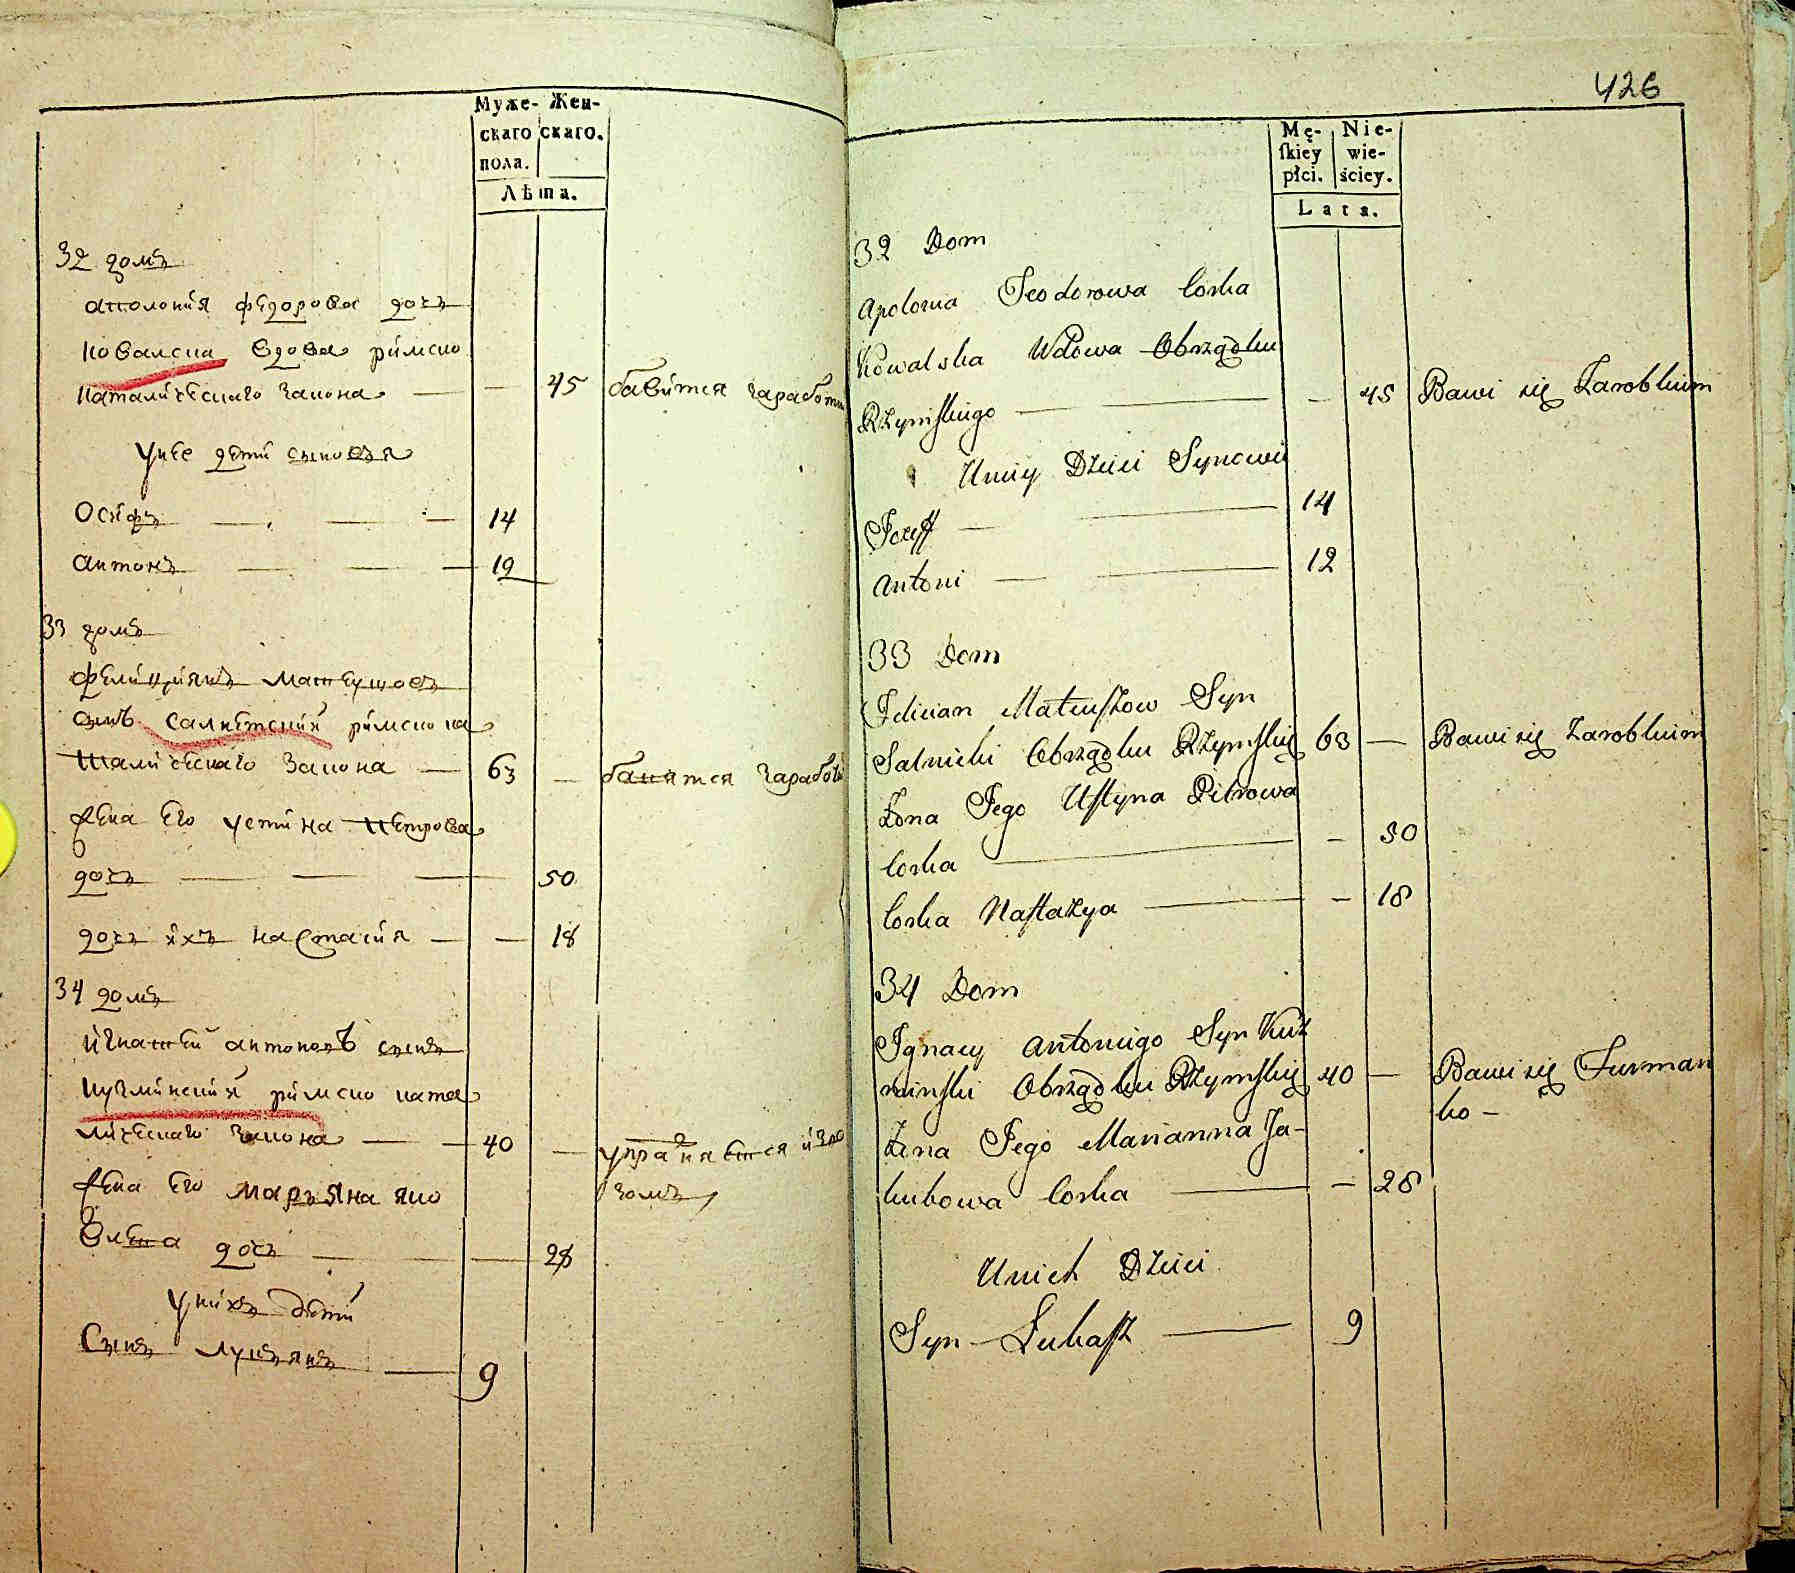 Муже- Жен-
скаго скаго.
пола.
Лѣта.
32 домъ
аполонія федорова дочь
ковалска вдова римско
каталическаго закона — — 45 бавится заработк
унее дети сыновья
Осифъ — — — 14
антонъ — — — 12
33 домъ
фелиціянъ матеушовъ
сынъ салнѣтский римскока
талическаго закона — 63 — бавится заработк
жена Его устина петрова
дочь — — — 50
дочь ихъ настасия — — 18
34 домъ
игнатей антоновъ сынъ
кузминский римско ката
лическаго закона — — 40 — упражняется изво
зомъ
жена Его марьяна яко
влева дочь — — 28
унихъ дѣти
Сынъ лукьянъ — 9
426
Mę- Nie-
ſkiey wie-
płci. ściey.
Lata.
32 Dom
Apolonia Teodorowa Corka
Kowalska Wdowa Obrządku
Rzymſkiego — — 45 Bawi się Zarobkiem
Uniey Dzieci Synowie
Jozeff — — 14
Antoni — — 12
33 Dom
Felician Mateuſzow Syn
Salnicki Obrządku Rzymſkie 63 — Bawi się Zarobkiem
Zona Jego Uſtyna Pitrowa
Corka — — 50
Corka Naſtazya — — 18
34 Dom
Ignacy Antoniego Syn Kuz
minſki Obrządku Rzymſkie 40 — Bawi się Furman
ko —
Zona Jego Marianna Ja-
kubowa Corka — — 28
Unich Dzieci
Syn — Łukaſz — 9